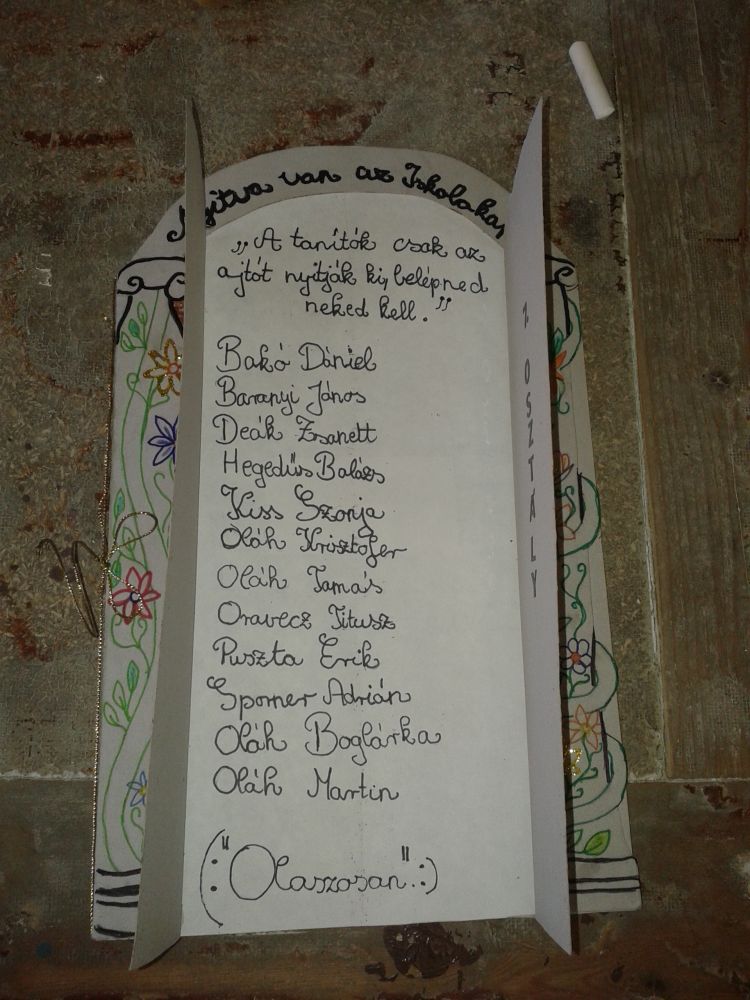 Nyitva van az Iskolaka
„A tanítók csak az
ajtót nyitják ki, belépned
neked kell."
Bakó Dániel
Baranyi János
Deák Zsanett
Hegedűs Balázs
Kiss Szonja
Oláh Krisztofer
Oláh Tamás
Oravecz Titusz
Puszta Erik
Sporner Adrián
Oláh Boglárka
Oláh Martin
(:"Olaszosan".:)
1. OSZTÁLY